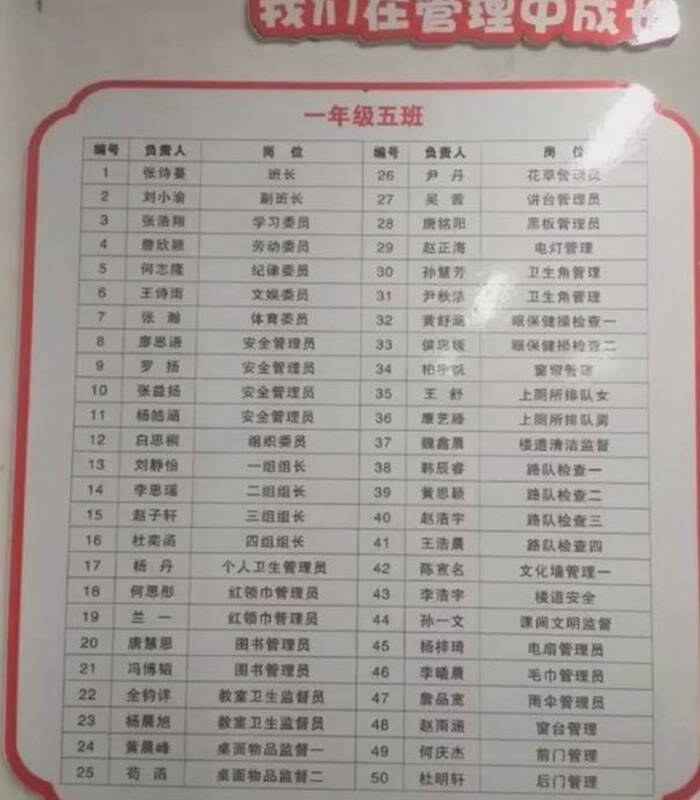 我们在管理中成长
一年级五班
编号 负责人 岗 位 编号 负责人 岗 位
1 张诗蔓 班长 26 尹 丹 花草管理员
2 刘小渝 副班长 27 吴 茜 讲台管理员
3 张浩翔 学习委员 28 唐铭阳 黑板管理员
4 詹欣颖 劳动委员 29 赵正海 电灯管理
5 何志隆 纪律委员 30 孙慧芳 卫生角管理
6 王诗雨 文娱委员 31 尹秋洁 卫生角管理
7 张 瀚 体育委员 32 黄舒涵 眼保健操检查一
8 廖思语 安全管理员 33 侯思媛 眼保健操检查二
9 罗 扬 安全管理员 34 窗帘管理
10 张益扬 安全管理员 35 王 舒 上厕所排队女
11 杨皓涵 安全管理员 36 康艺滕 上厕所排队男
12 白思桐 组织委员 37 魏鑫晨 楼道清洁监督
13 刘静怡 一组组长 38 韩辰睿 路队检查一
14 李思瑶 二组组长 39 黄思颖 路队检查二
15 赵子轩 三组组长 40 赵浩宇 路队检查三
16 杜奕函 四组组长 41 王浩晨 路队检查四
17 杨 丹 个人卫生管理员 42 陈宣名 文化墙管理一
18 何思彤 红领巾管理员 43 李浩宇 楼道安全
19 兰 一 红领巾管理员 44 孙一文 课间文明监督
20 唐慧恩 图书管理员 45 杨梓琦 电扇管理员
21 冯博韬 图书管理员 46 李曦晨 毛巾管理员
22 全钧洋 教室卫生监督员 47 詹品宽 雨伞管理员
23 杨晨旭 教室卫生监督员 48 赵雨涵 窗台管理
24 黄晨峰 桌面物品监督一 49 何庆杰 前门管理
25 苟 函 桌面物品监督二 50 杜明轩 后门管理